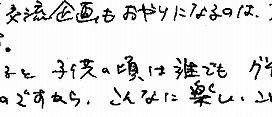 交流企画もおやりになるのは、
。
ると子供の頃は誰でも
のですから、こんなに楽しい